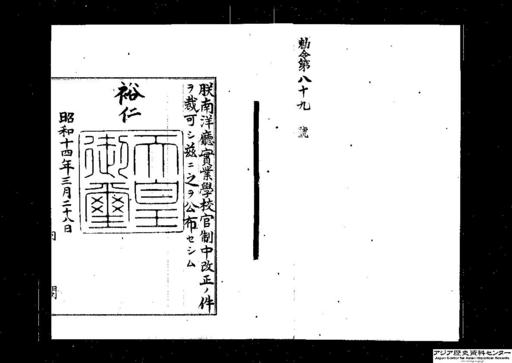 勅令第八十九號
朕南洋廳實業學校官制中改正ノ件
ヲ裁可シ茲ニ之ヲ公布セシム
裕仁
天皇御璽
昭和十四年三月二十八日
内閣
アジア歴史資料センター
Japan Center for Asian Historical Records